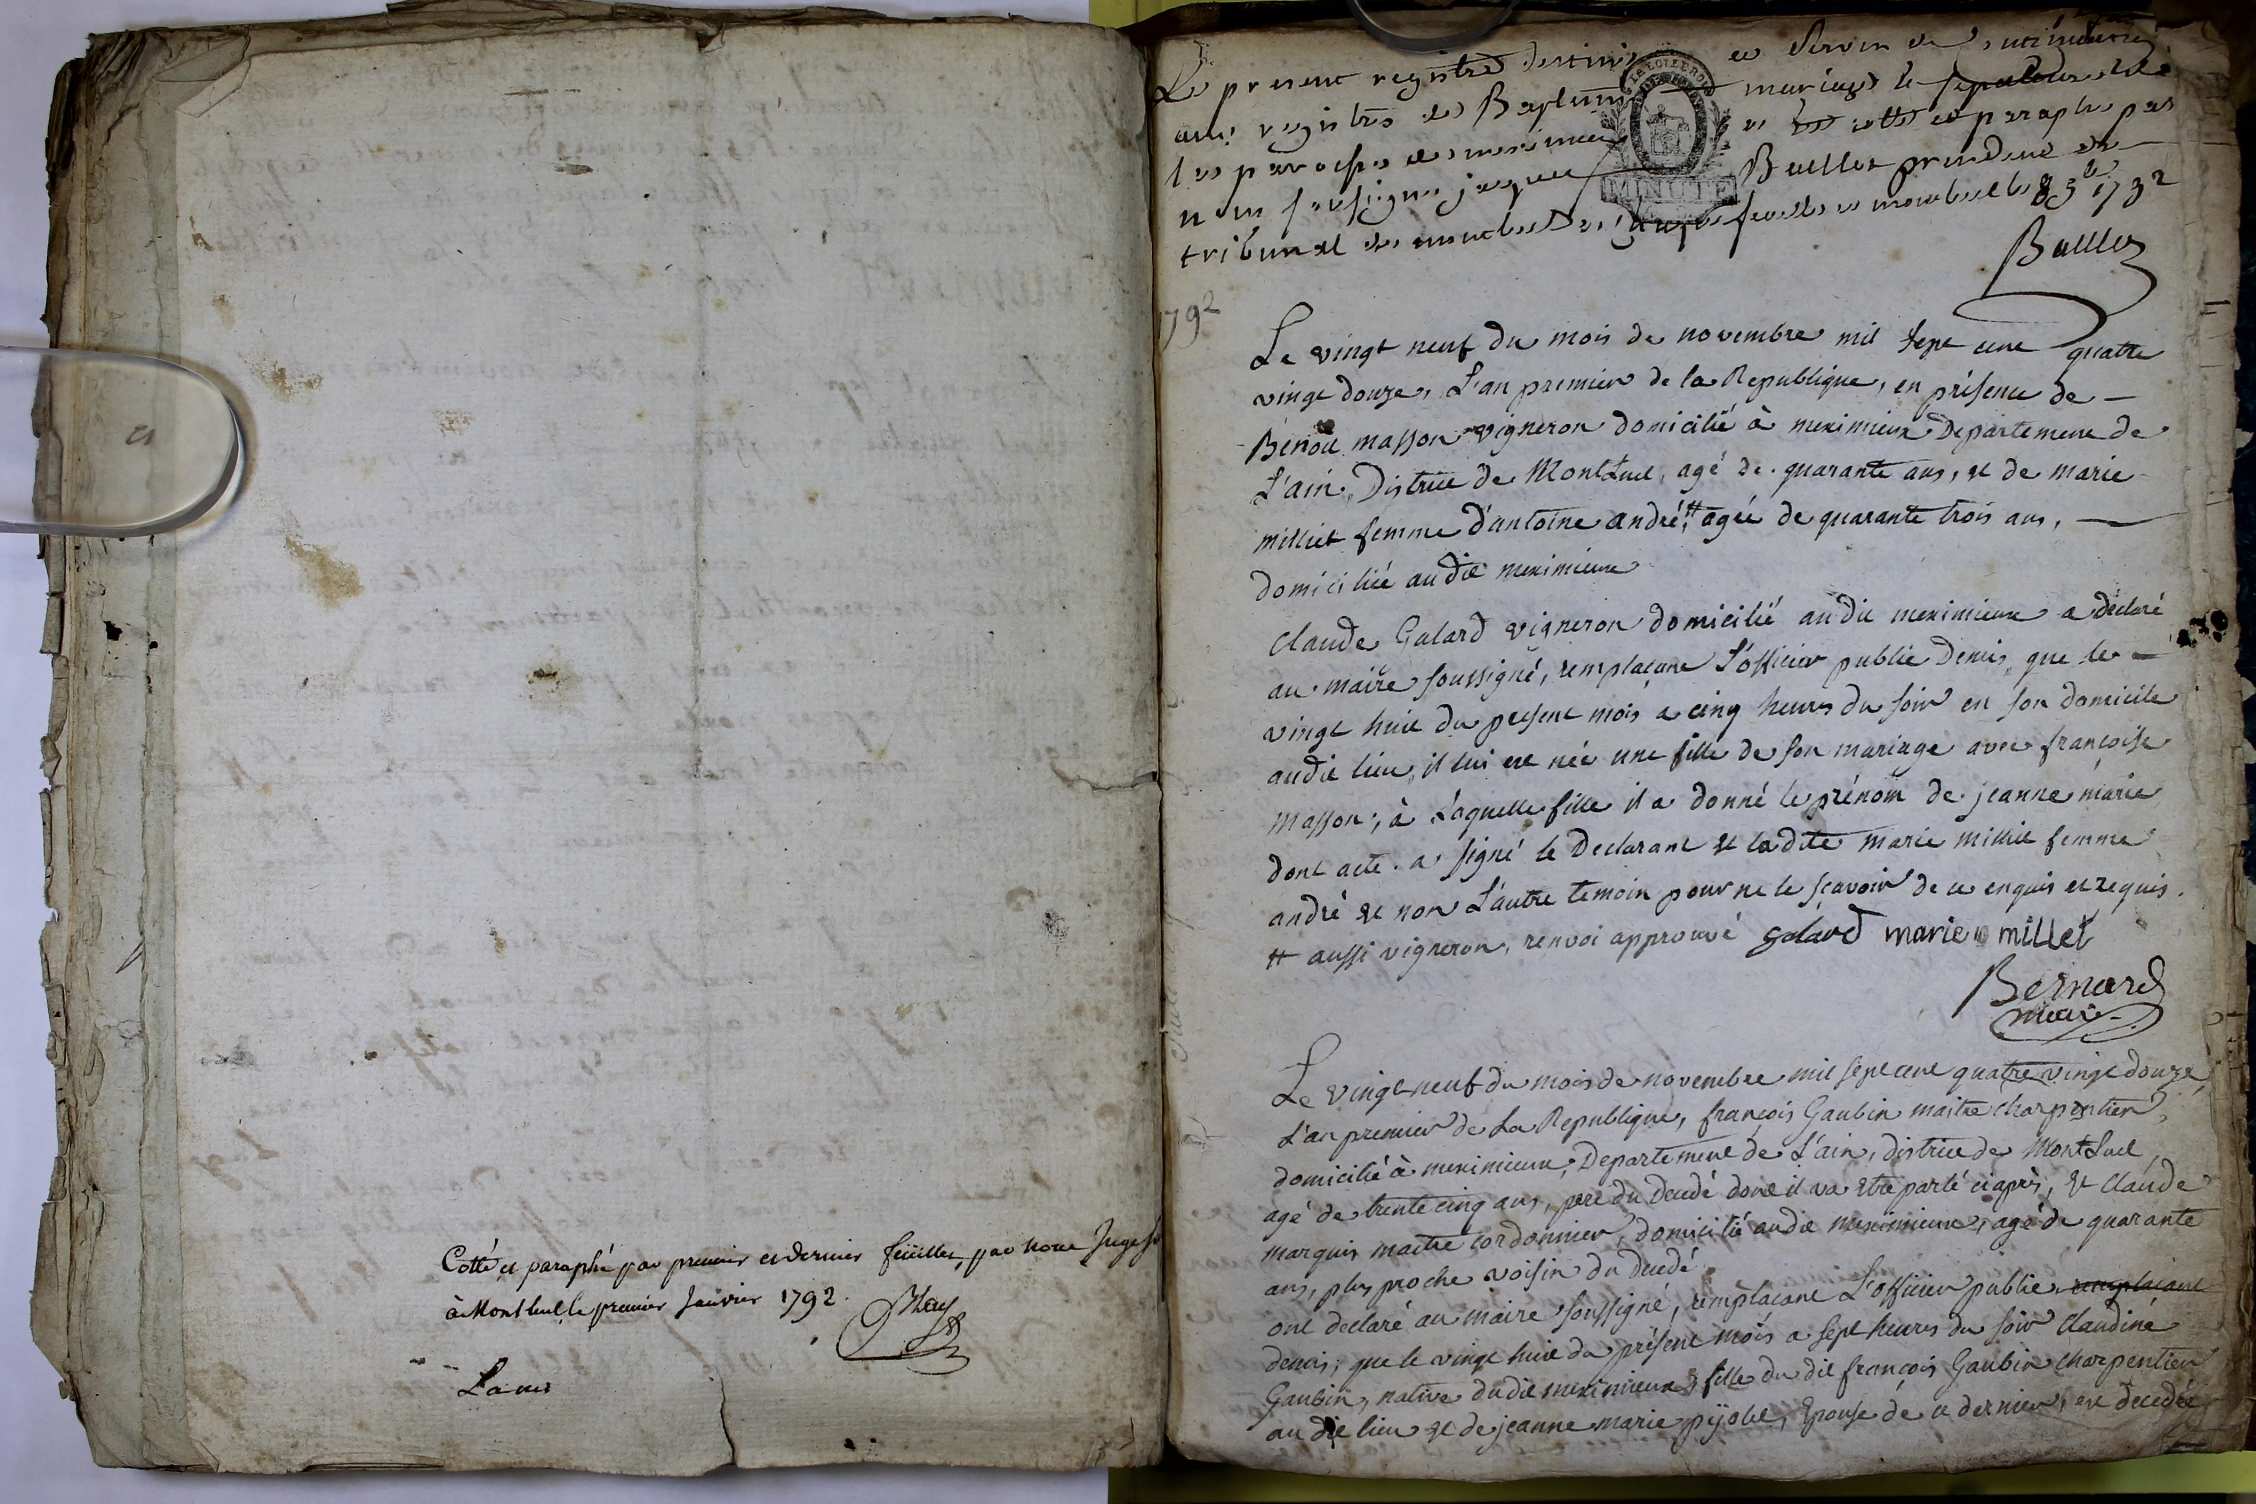 Cotté et paraphé par premier et dernier feüillet, par nous Juge
à Montluel le premier Janvier 1792.
Le present registre destiné a servir de
aux registres des Baptemes mariages et sepultures de
la paroisse de meximieux a été cotté et paraphé par
nous soussigné jacques Baillot president du
tribunal de montluel feuilles a montluel le 8 3bre 1792
Baillot
MINUTE
LA LOI LE ROI
1792
Le vingt neuf du mois de novembre mil sept cent quatre
vingt douze, L'an premier de la Republique, en présence de —
Benoit masson vigneron domicilié à meximieux Departement de
L'ain, District de Montluel, agé de quarante ans, et de marie
milliet femme d'antoine andré,# agée de quarante trois ans, —
domiciliée audit meximieux
Claude Galard vigneron domicilié audit meximieux a déclaré
au maire soussigné, remplaçant L'officier public Denis, que le —
vingt huit du present mois a cinq heures du soir en son domicile
audit lieu, il lui est née une fille de son mariage avec françoise
masson, à Laquelle fille il a donné le prénom de jeanne marie
dont acte. a signé le Declarant et ladite marie milliet femme
andré et non L'autre temoin pour ne le sçavoir de ce enquis et requis.
# aussi vigneron, renvoi approuvé Galard marie millet
Bernard
maire
Le vingt neuf du mois de novembre mil sept cent quatre vingt douze,
L'an premier de La Republique, françois Gaubin maitre charpentier,
domicilié à meximieux, Departement de L'ain, district de Montluel,
agé de trente cinq ans, pere du decedé dont il va etre parlé ci après, et Claude
marquis maitre cordonnier, domicilié audit meximieux, agé de quarante
ans, plus proche voisin du decedé
ont declaré au maire soussigné, remplaçant L'officier public remplaçant
denis; que le vingt huit du présent mois a sept heures du soir Claudine
Gaubin, native dudit meximieux, fille du dit françois Gaubin charpentier
au dit lieu et de jeanne marie pijolet, Epouse de ce dernier, est decedée